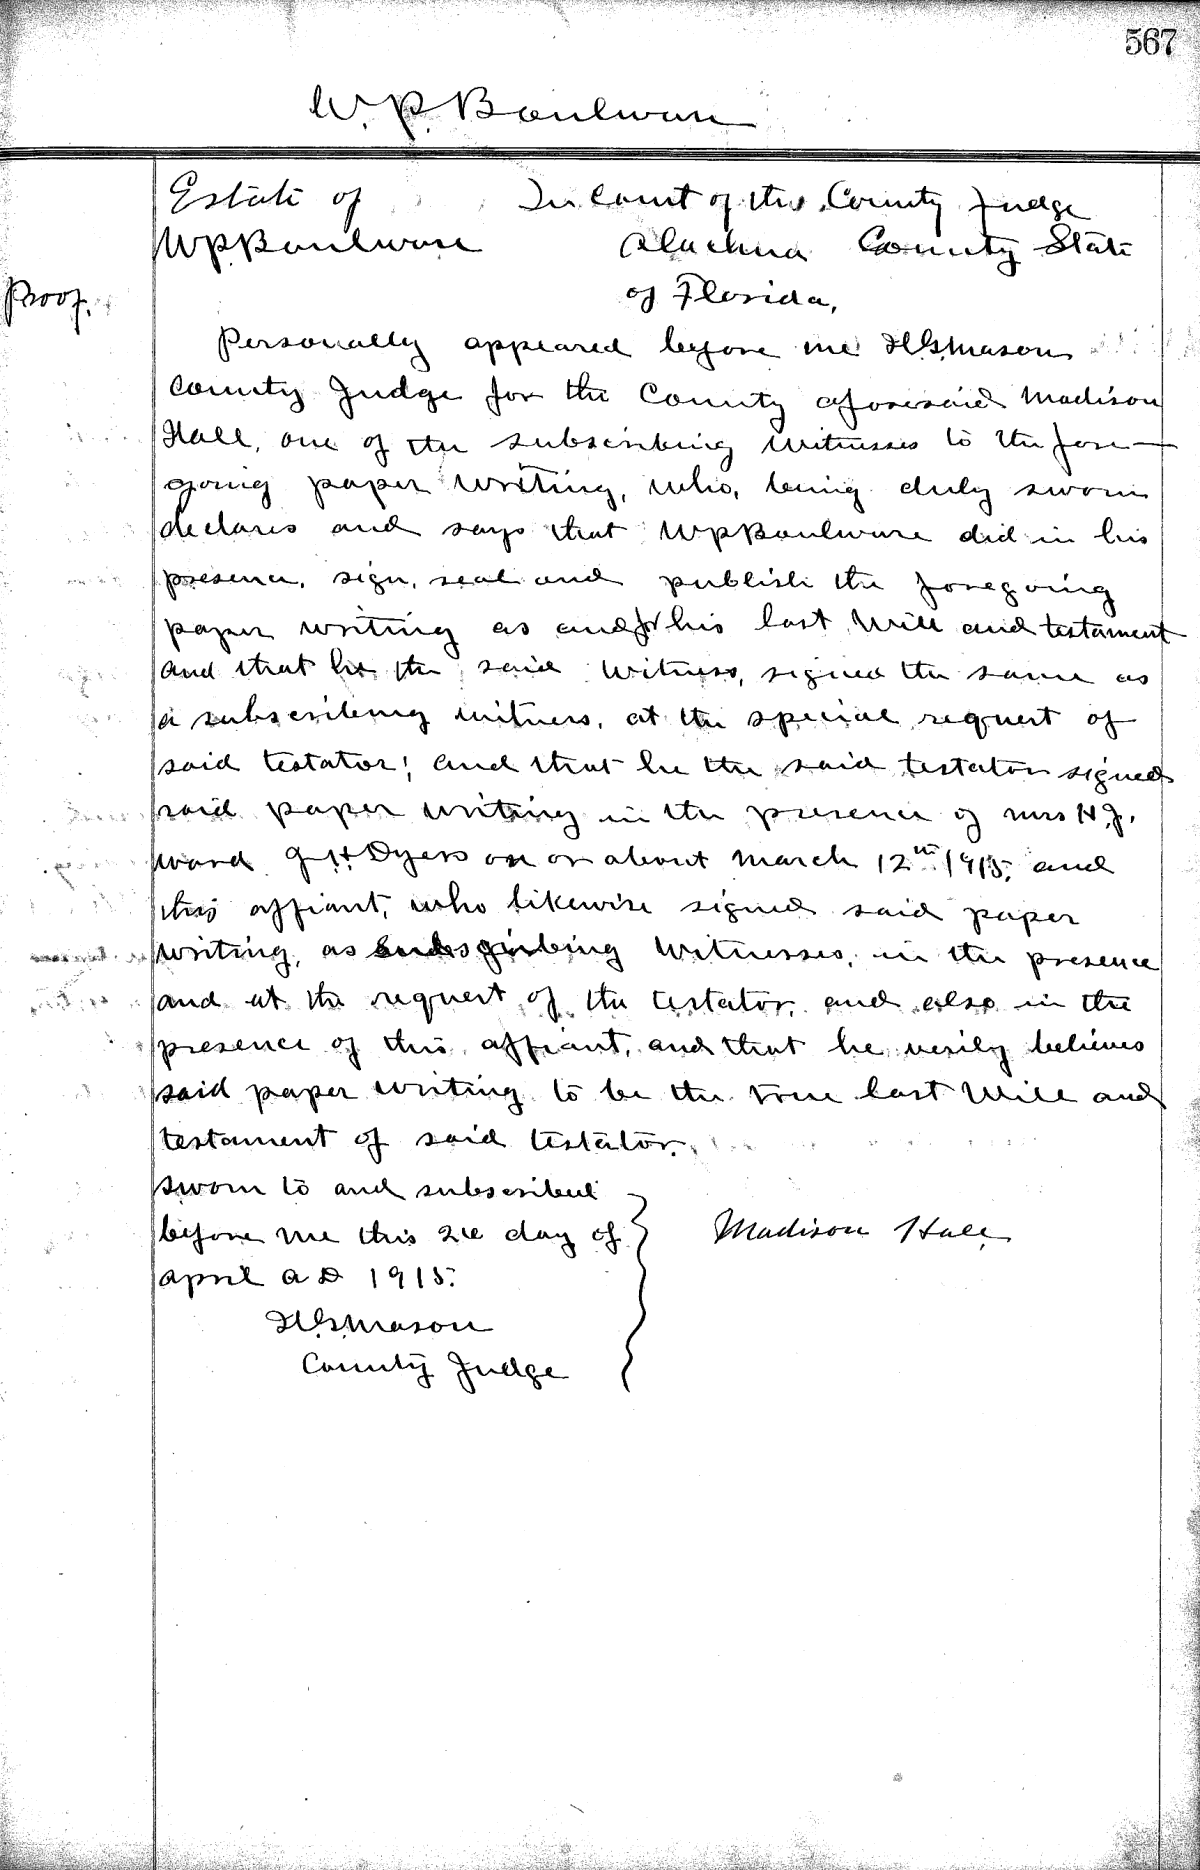 567
W. P. Boulware
Estate of In Court of the County Judge
W P Boulware Alachua County State
of Florida,
Proof.
Personally appeared before me H.G. Mason
County Judge for the County aforesaid Madison
Hall, one of the subscribing witnesses to the fore-
going paper writing, who, being duly sworn
declares and says that W P Boulware did in his
presence, sign, seal and publish the foregoing
paper writing as and for his last Will and testament
and that he the said witness, signed the same as
a subscribing witness, at the special request of
said testator; and that he the said testator signed
said paper writing in the presence of Mrs H. J.
Ward J H Dyers on or about March 12th 1915, and
this affiant, who likewise signed said paper
writing, as subscribing witnesses, in the presence
and at the request of the testator, and also in the
presence of this affiant, and that he verily believes
said paper writing to be the true last Will and
testament of said testator.
Sworn to and subscribed
before me this day of Madison Hall
April A D 1915.
H.G. Mason
County Judge